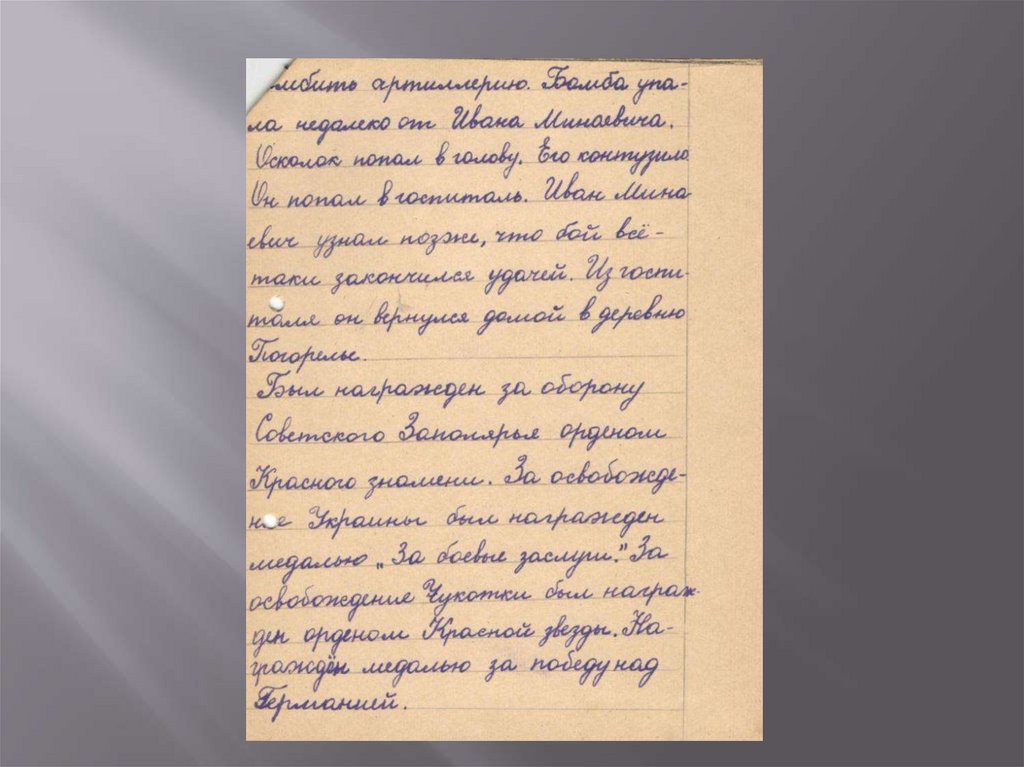 мбить артиллерию. Бомба упа-
ла недалеко от Ивана Минаевича.
Осколок попал в голову. Его контузило
Он попал в госпиталь. Иван Мина
евич узнал позже, что бой всё-
таки закончился удачей. Из госпи-
таля он вернулся домой в деревню
Погорелы.
Был награжден за оборону
Советского Заполярья орденом
Красного знамени. За освобожде-
ние Украины был награжден
медалью „За боевые заслуги". За
освобождение Чукотки был награж-
ден орденом Красной звезды. На-
граждён медалью за победу над
Германией.